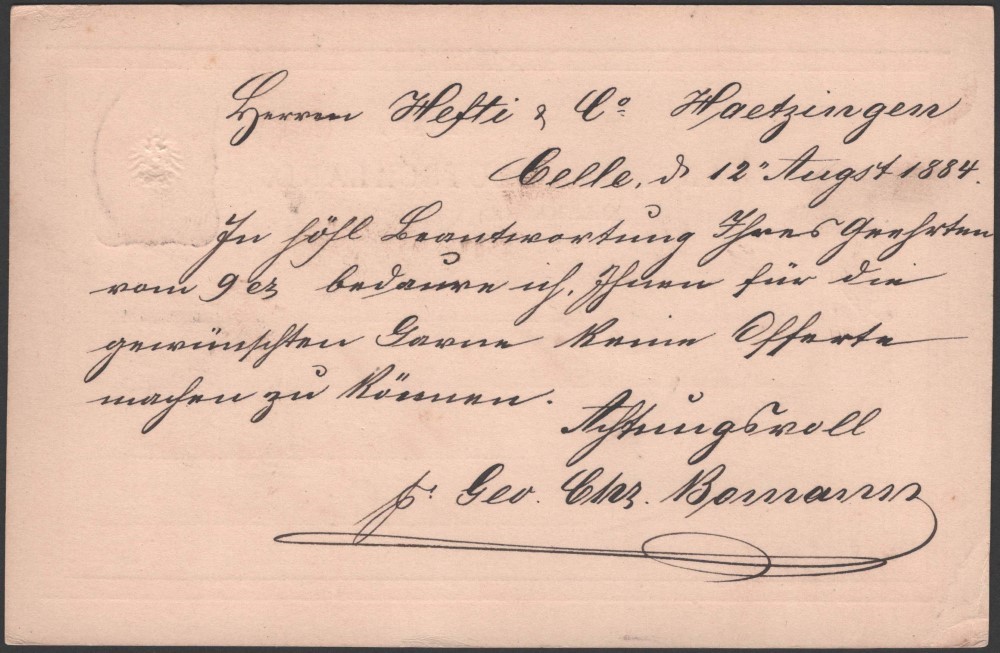 Herren Hefti & Co. Haetzingen
Celle, d 12" Augst 1884.
In höfl Beantwortung Ihres Geehrten
vom 9 cr bedaure ich, Ihnen für die
gewünschten Garne keine Offerte
machen zu können.
Achtungsvoll
p. Geo. Chr. Bomann